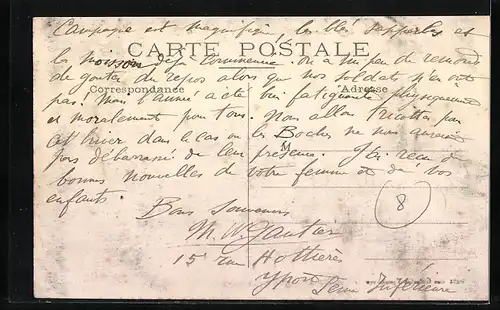 Campagne est magnifique, les blés superbes et
la moisson déjà commencée. On a un peu de remords
CARTE POSTALE
de goûter du repos alors que nos soldats n'en ont
Correspondance
Adresse
pas. Mais l'année a été bien fatigante physiquement
et moralement pour tous. Nous allons
cet hiver dans le cas où les Boches ne nous auraient
M
pas débarrassé de leur présence. J'ai reçu de
bonnes nouvelles de votre femme et de vos
enfants.
8
Bons Souvenirs
M. W. Gautier
15 rue Hottières
Yport
Seine Inférieure